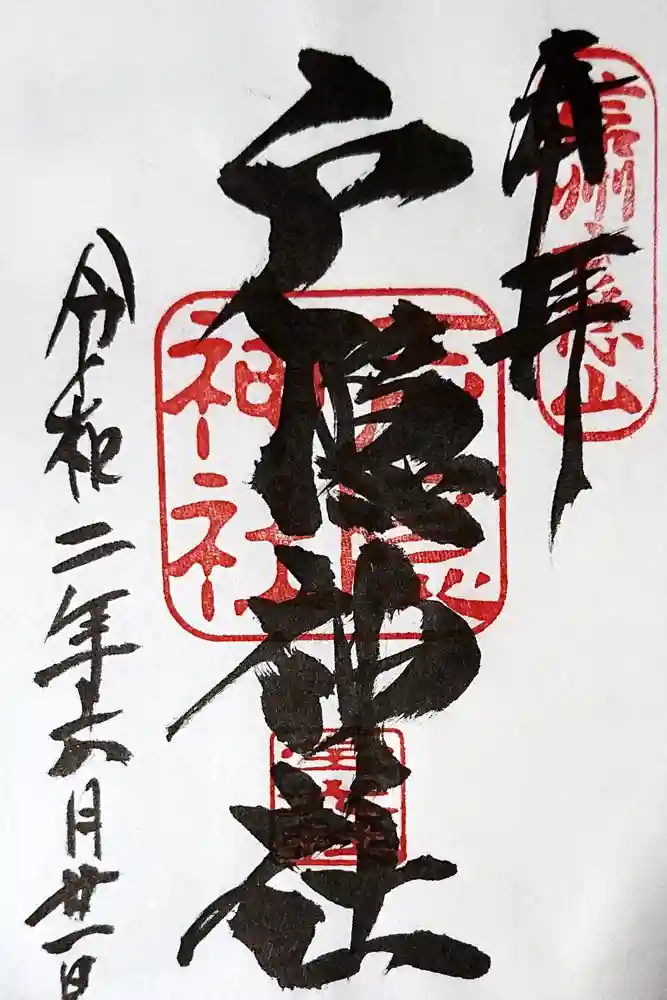 奉拝
信州戸隠山
戸隠神社
戸隠神社
令和二年六月廿一日